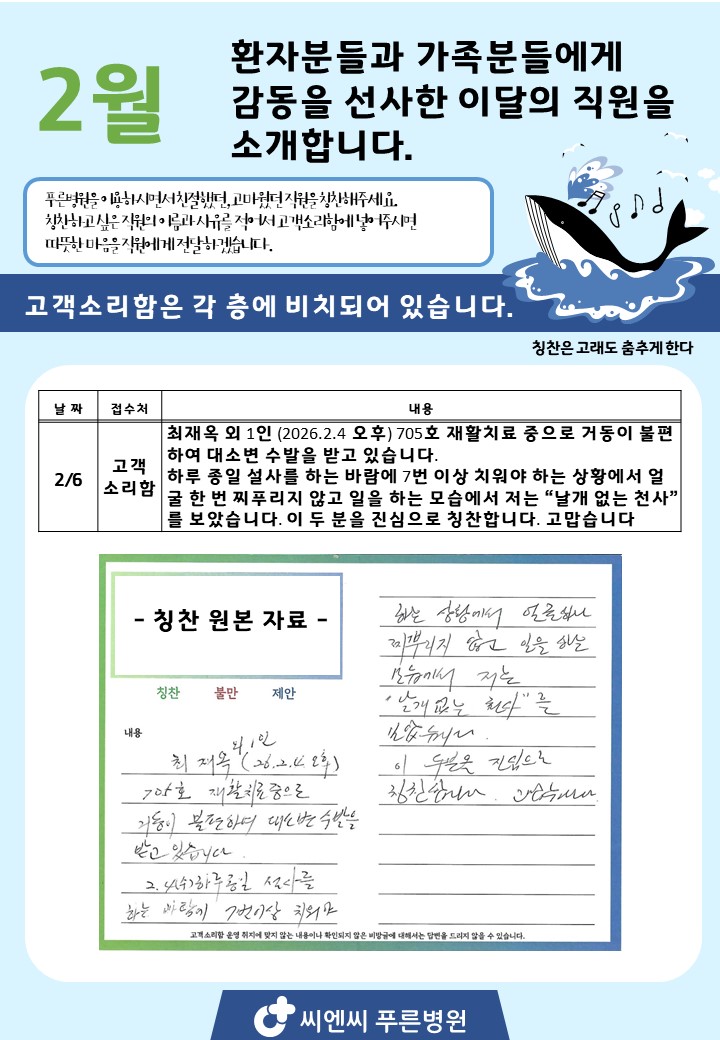 2월
환자분들과 가족분들에게
감동을 선사한 이달의 직원을
소개합니다.
푸른병원을 이용하시면서 친절했던, 고마웠던 직원을 칭찬해주세요.
칭찬하고 싶은 직원의 이름과 사유를 적어서 고객소리함에 넣어주시면
따뜻한 마음을 직원에게 전달하겠습니다.
고객소리함은 각 층에 비치되어 있습니다.
칭찬은 고래도 춤추게 한다
날 짜 접수처 내용
2/6
고객
소리함
최재옥 외 1인 (2026.2.4 오후) 705호 재활치료 중으로 거동이 불편
하여 대소변 수발을 받고 있습니다.
하루 종일 설사를 하는 바람에 7번 이상 치워야 하는 상황에서 얼
굴 한 번 찌푸리지 않고 일을 하는 모습에서 저는 “날개 없는 천사”
를 보았습니다. 이 두 분을 진심으로 칭찬합니다. 고맙습니다
- 칭찬 원본 자료 -
칭찬 불만 제안
내용
외 1인
최 재옥 (26.2.4. 오후)
705호 재활치료중으로
거동이 불편하여 대소변 수발을
받고 있습니다.
2.4(수)하루종일 설사를
하는 바람에 7번이상 치워야
하는 상황에서 얼굴하나
찌뿌리지 않고 일을 하는
모습에서 저는
"날개 없는 천사"를
보았습니다.
이 두분을 진심으로
칭찬합니다. 고맙습니다.
고객소리함 운영 취지에 맞지 않는 내용이나 확인되지 않은 비방글에 대해서는 답변을 드리지 않을 수 있습니다.
씨엔씨 푸른병원